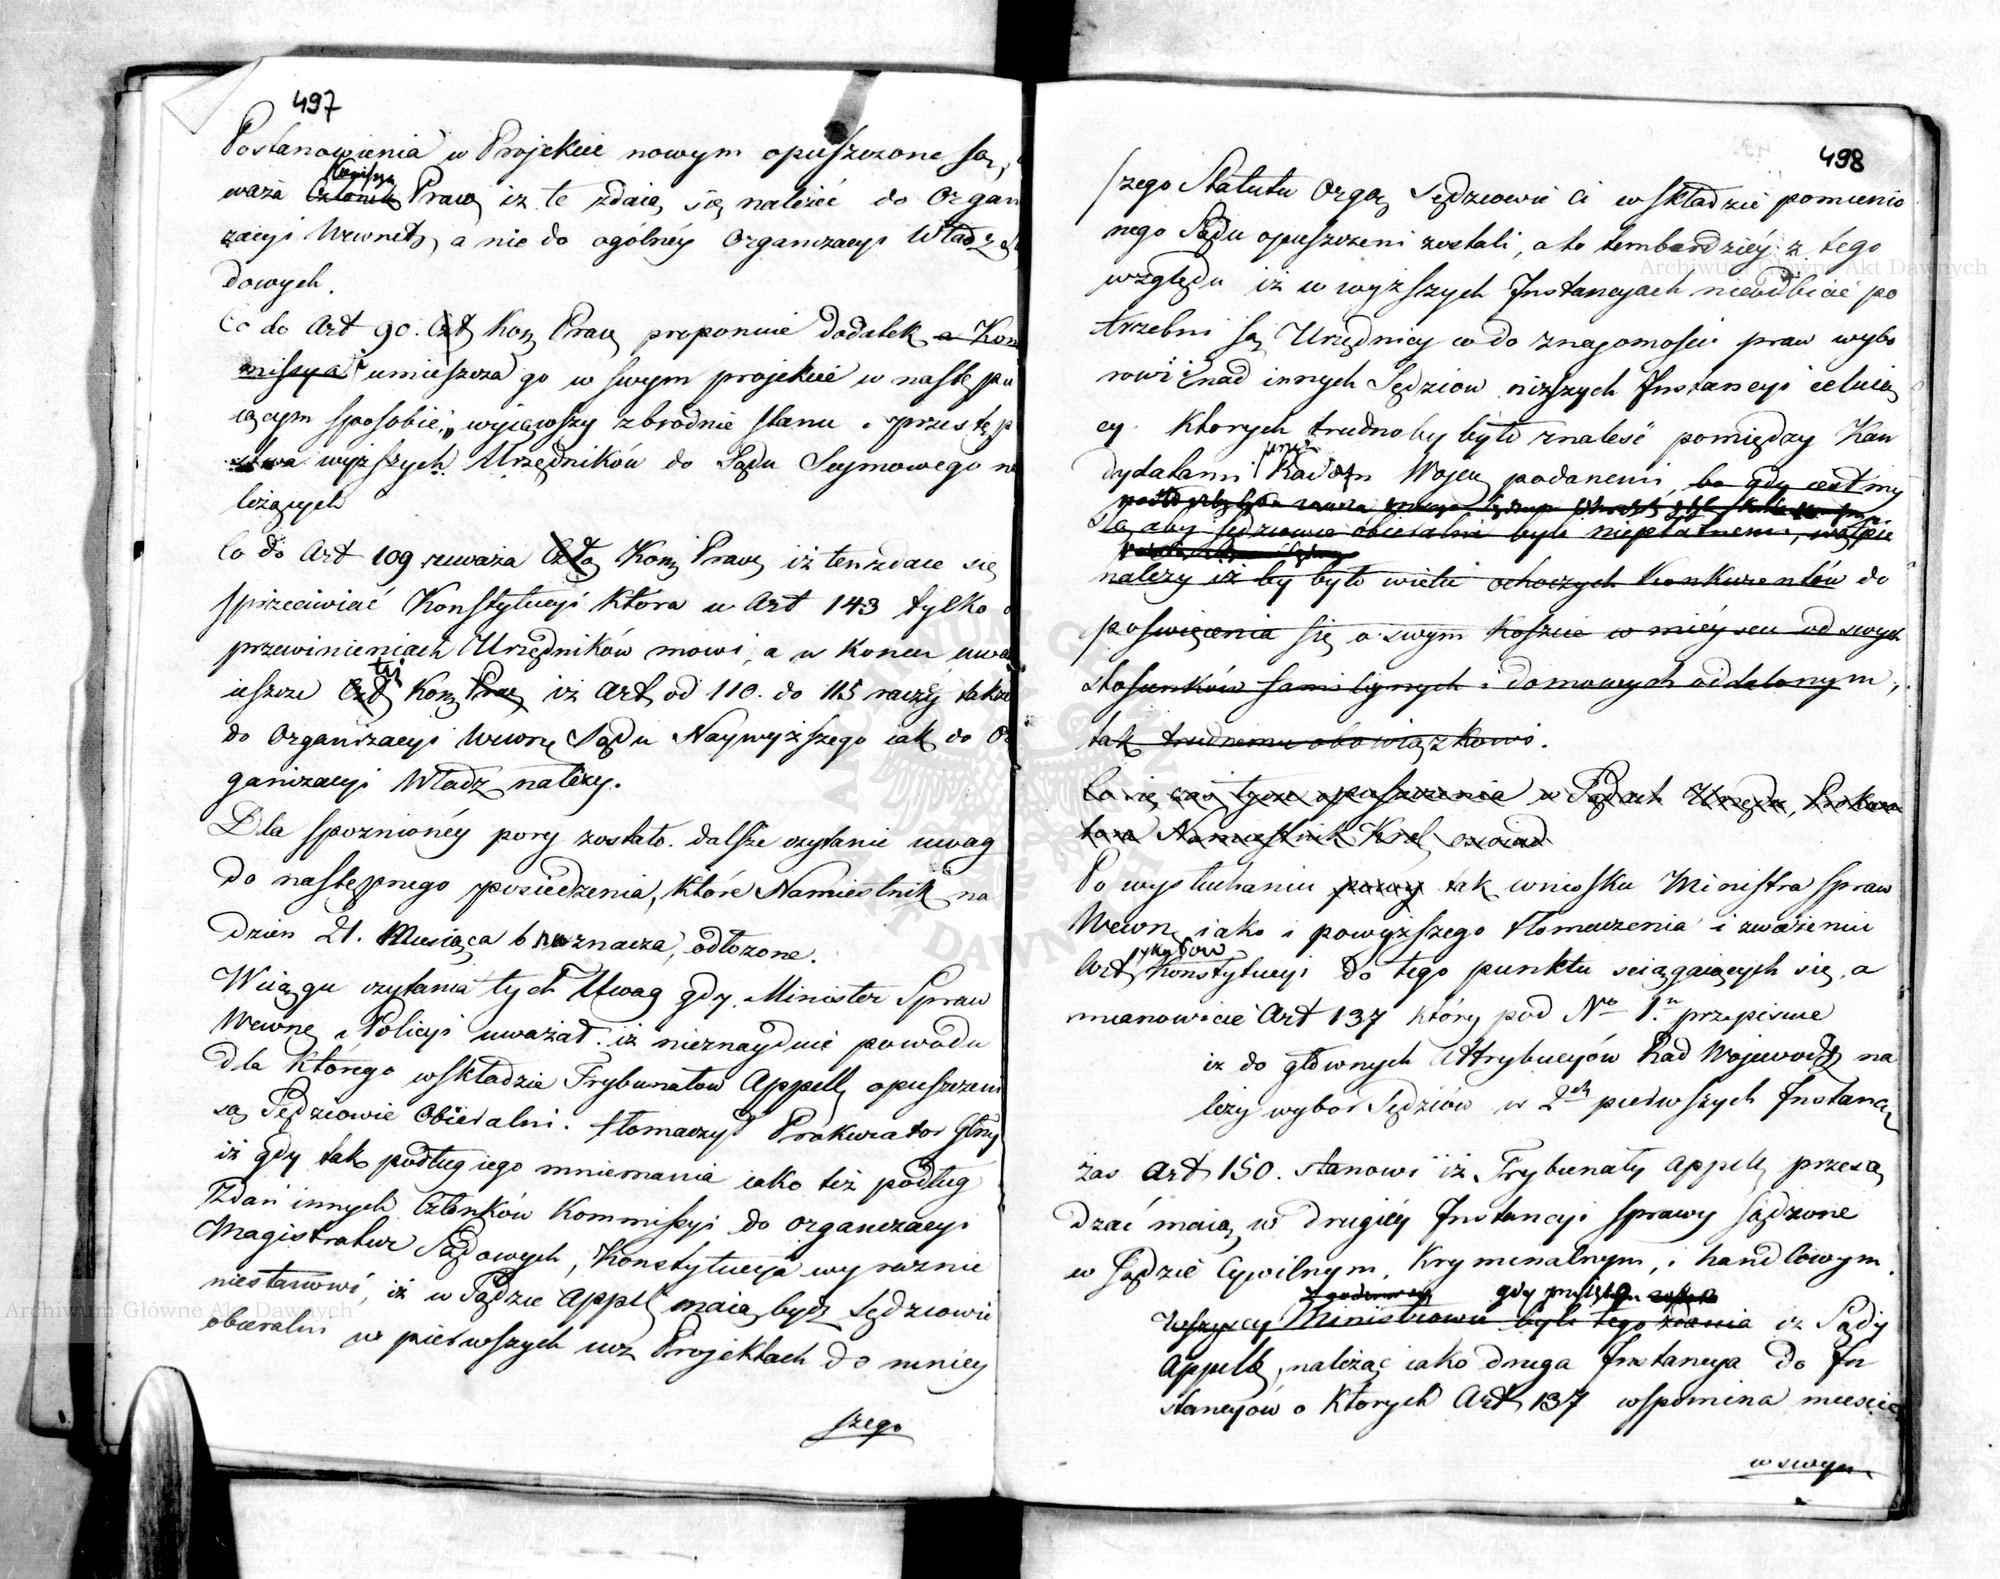 497
Postanowienia w Projekcie nowym opuszczone są,
waża Członek Praw, iż te zdaią się należeć do Organ
zacyi Wewnęt, a nie do ogólney Organizacyi Władz Są
dowych.
Co do Art 90. Czł Kom Praw proponuie dodatek a Kom
missya umieszcza go w swym projekcie w nastę pu
iącym sposobie „wyiąwszy zbrodnie stanu i przestęp
stwa wyższych Urzędników do Sądu Seymowego na
leżących
Co do Art 109 uważa Czło Kom Praw, iż ten zdaie się
sprzeciwiać Konstytucyi która w Art 143 tylko o
przewinieniach Urzędników mowi, a w koncu uwa
ieszcze Czł też Kom Praw iż Art, od 110. do 115 raczéy także
do Organizacyi Wewnę Sądu Naywyższego iak do Or
ganizacyi Władz należy.
Dla spoznionéy pory zostało dalsze czytanie uwag
do następnego posiedzenia, które Namiestnik na
dzień 21. Miesiąca b naznacza, odłożone.
W ciągu czytania tych Uwag gdy Minister Spraw
Wewnę i Policyi uważał iż nieznayduie powodu
dla którego w składzie Trybunałow Appell, opuszczeni
są Sędziowie Obieralni. tłomaczył Prokurator Głny
iż gdy tak podług iego mniemania iako też podług
Zdań innych Członków Kommissyi do Organizacyi
Magistratur Sądowych, Konstytucya wyraznie
niestanowi, iż w Sądzie Appell, maią bydź Sędziowie
obieralni w pierwszych więc Projektach do nniey
szego
498
szego Statutu Orga, Sędziowie ci w składzie pomienio
nego Sądu opuszczeni zostali, a to tembardziéy z tego
względu iż w wyższych Instancyach nieodbicie po
trzebni są Urzędnicy co do znajomości praw wybo
rowi i nad innych Sędziow niższych Instancyi celuią
cy. Których trudnoby było znaleść pomiędzy Kan
dydatami przez Radom Wojew, podanemi, bo gdy iest my
slą, aby Sędziowie obieralni byli niepłatnemi, wątpić
należy iż by było wielu ochoczych Konkurentów do
poświęcenia się o swym koszcie w mieyscu od swych
stosunków familiynych i domowych oddalonym,
tak trudnemu obowiązkowi.
opuszczenia w Sądach Urzędu, Prokura
tora Namiestnik Krol,
Po wysłuchaniu tak wniosku Ministra Spraw
Wewn, iako i powyższego tłomaczenia i zważeniu
Art, Konstytucyi do tego punktu sciągaiących się, a
mianowicie Art 137 który pod No 1. przepisuie
iż do głównych Attrybucyów Rad Wojewodz na
leży wybor Sędziów w 2ch pierwszych Instanc,
zas Art 150. stanowi iż Trybunały Appell, przesą
dzać maią, w drugiéy Instancyi sprawy sądzone
w Sądzie Cywilnym, Kryminalnym, i handlowym.
gdy
Wszyscy Ministrowie byli tego zdania iż Sądy
Appell, należąc iako druga Instancya do In
stancyów o których Art, 137 wspomina miescić
w swym